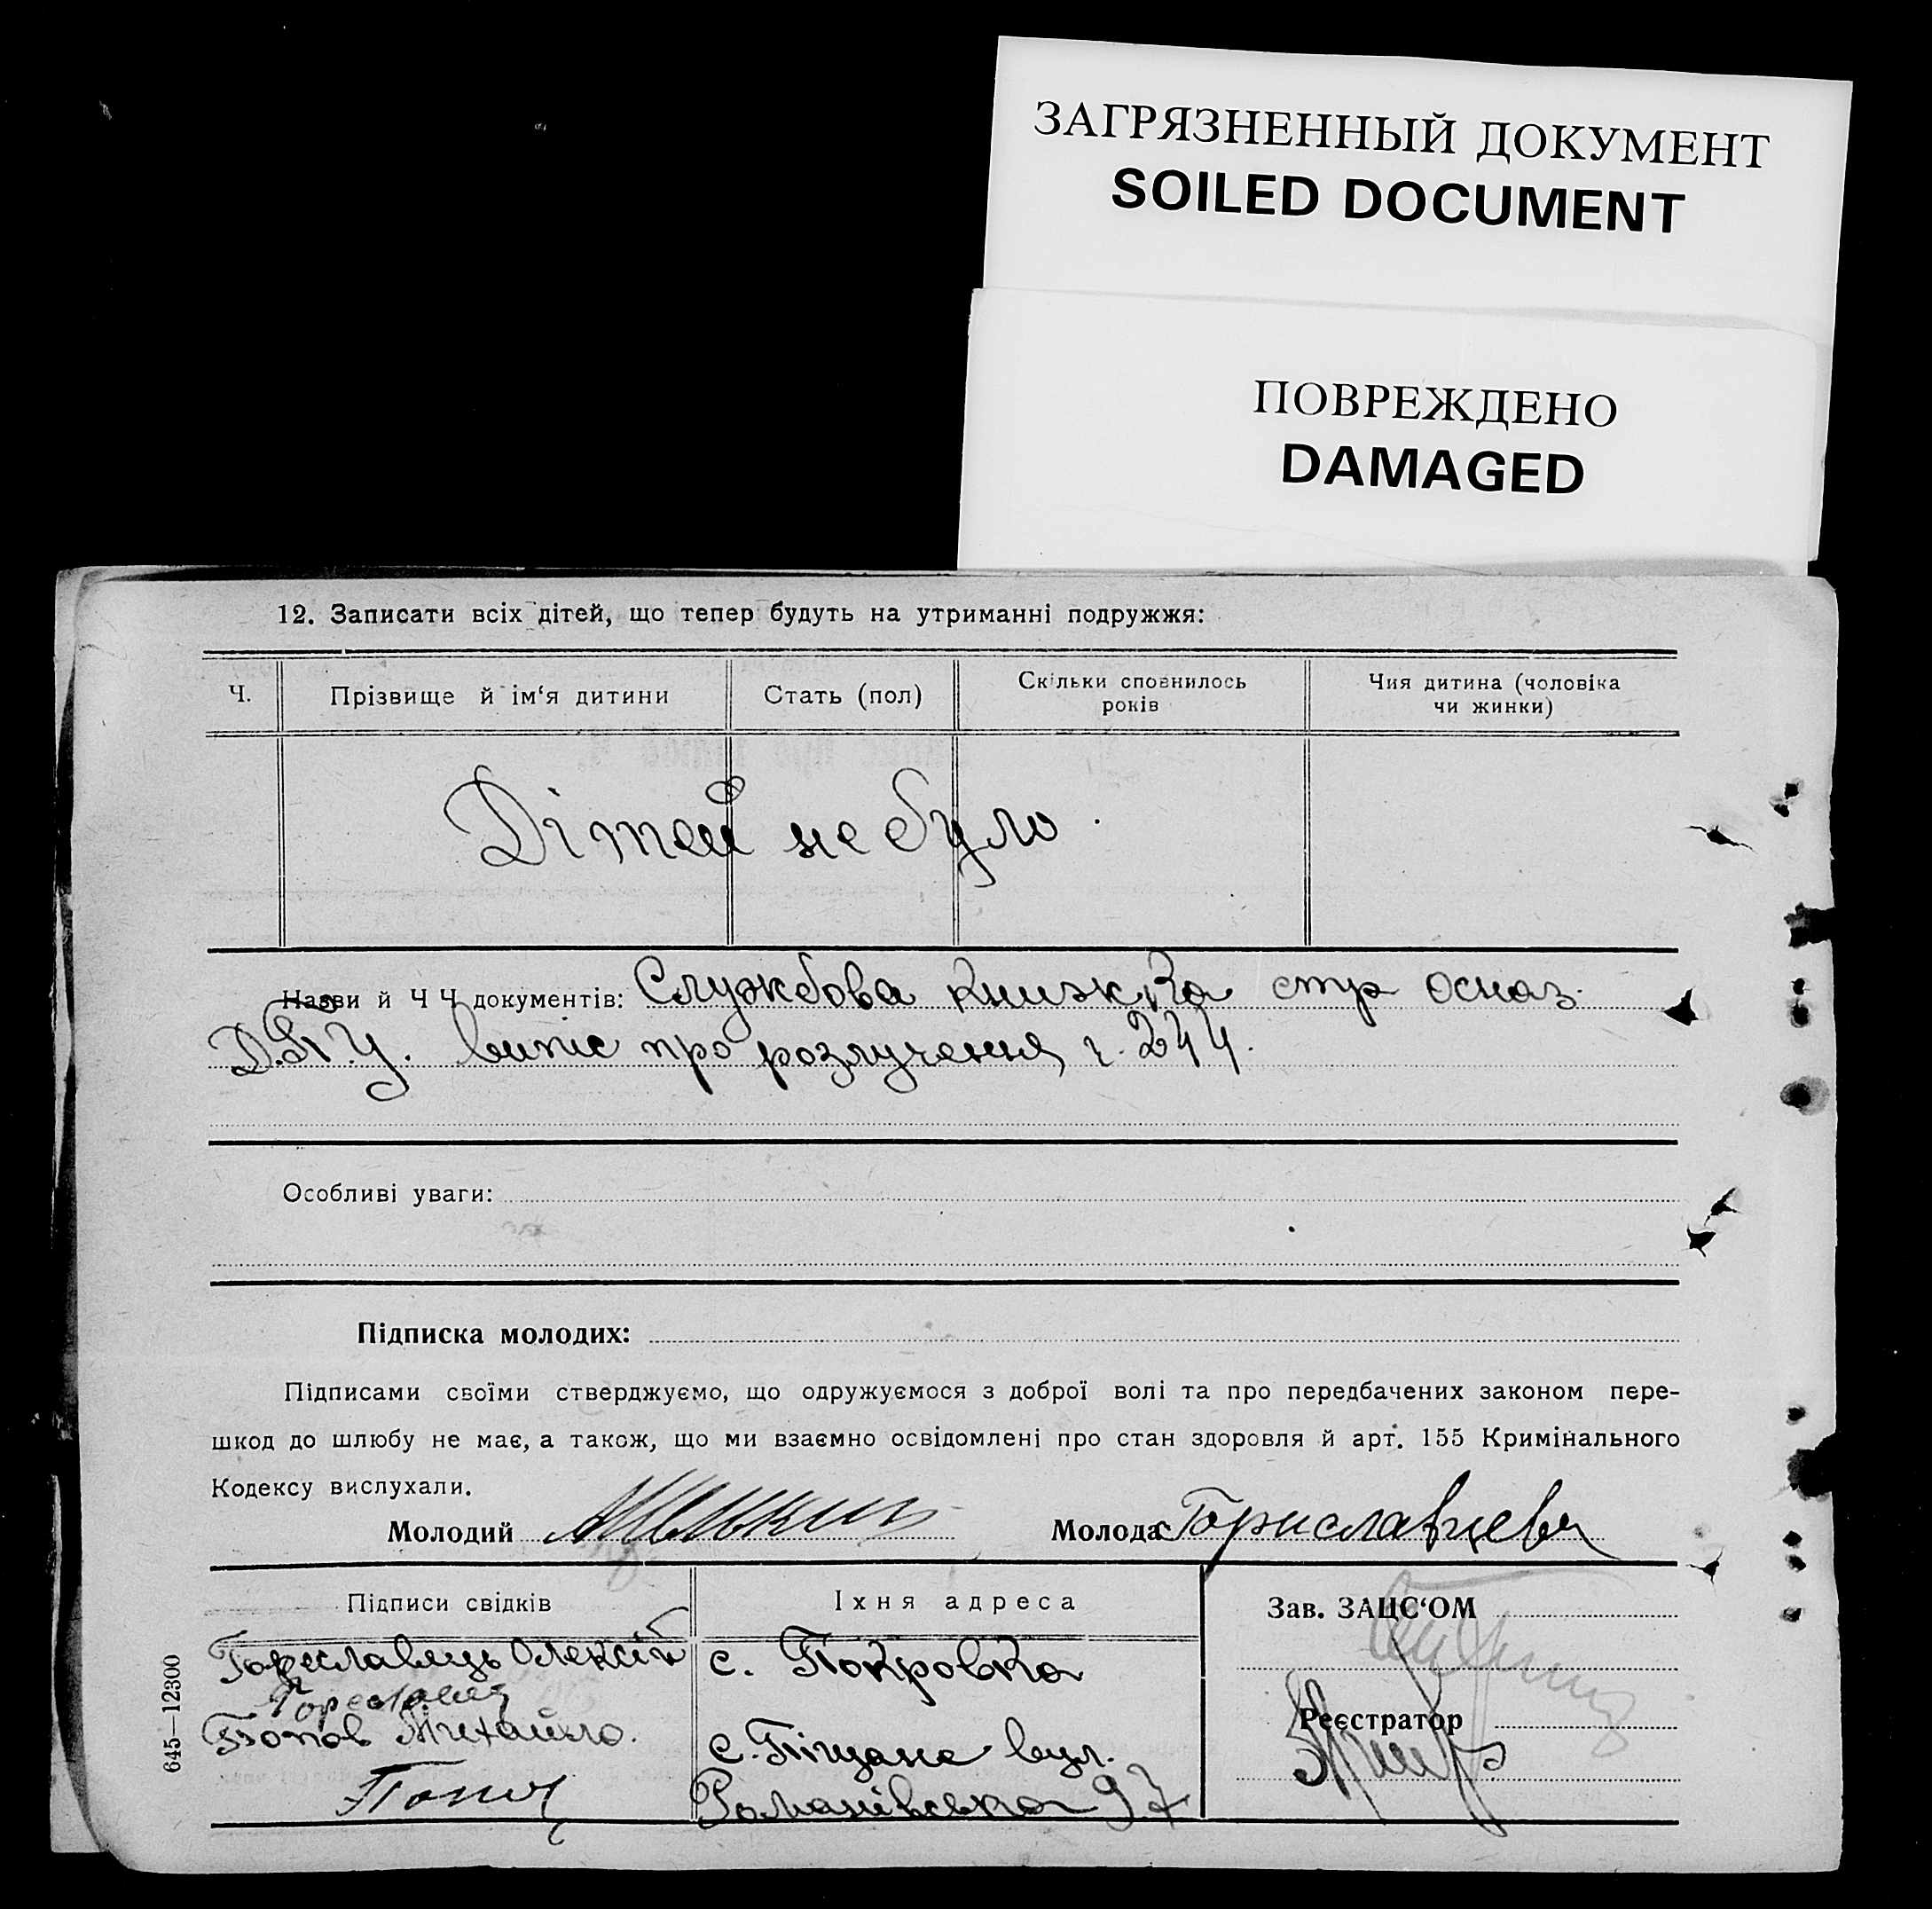 ЗАГРЯЗНЕННЫЙ ДОКУМЕНТ
SOILED DOCUMENT
ПОВРЕЖДЕНО
DAMAGED
12. Записати всіх дітей, що тепер будуть на утриманні подружжя:
Ч. Прізвище й ім‘я дитини Стать (пол) Скільки сповнилось років Чия дитина (чоловіка чи жинки)
Дітей не було.
Назви й Ч Ч документів: Службова книжка стр осназ.
Д.П.У. випіс про розлучення ч. 244.
Особливі уваги:
Підписка молодих:
Підписами своїми стверджуємо, що одружуємося з доброї волі та про передбачених законом пере-
шкод до шлюбу не має, а також, що ми взаємно освідомлені про стан здоровля й арт. 155 Кримінального
Кодексу вислухали.
Молодий Молода Гориславцева
Підписи свідків Їхня адреса Зав. ЗАЦС‘ОМ
Гореславець Олексій с. Покровка
Попов Михайло.
с. Піщане вул.
Реєстратор
Попов Романівська 97
645—12300